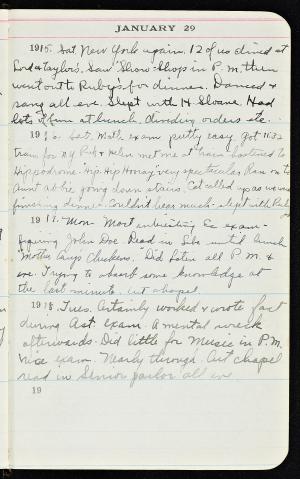 JANUARY 29
1915. Sat. New York again. 12 of us dined at
Lord & Taylor's. Saw "Show Shop" in P.M. then
went out to Ruby's for dinner. Danced &
sang all eve. Slept with H. Sloane. Had
lots of fun at lunch, dividing orders etc.
1916. Sat. Math. exam pretty easy Got 11:32
train for N.Y. Rub & Helen met me at train hastened to
Hippodrome. Hip Hip Hooray very spectacular. Ran on to
Aunt going down stairs. called up as we were
finishing dinner. Couldn't hear much. slept with Rub
1917. Mon. Most interesting Ec exam-
figuring John Doe. Read in Libe until lunch
Mother Carey's Chickens. Did Lit all P.M. &
eve. Trying to absorb some knowledge at
the last minute. Cut chapel.
1918. Tues. Certainly worked & wrote fast
during Ast. exam. A mental wreck
afterwards. Did little for Music in P.M.
nice exam. Nearly through. Cut chapel
read in Senior parlor all eve
19